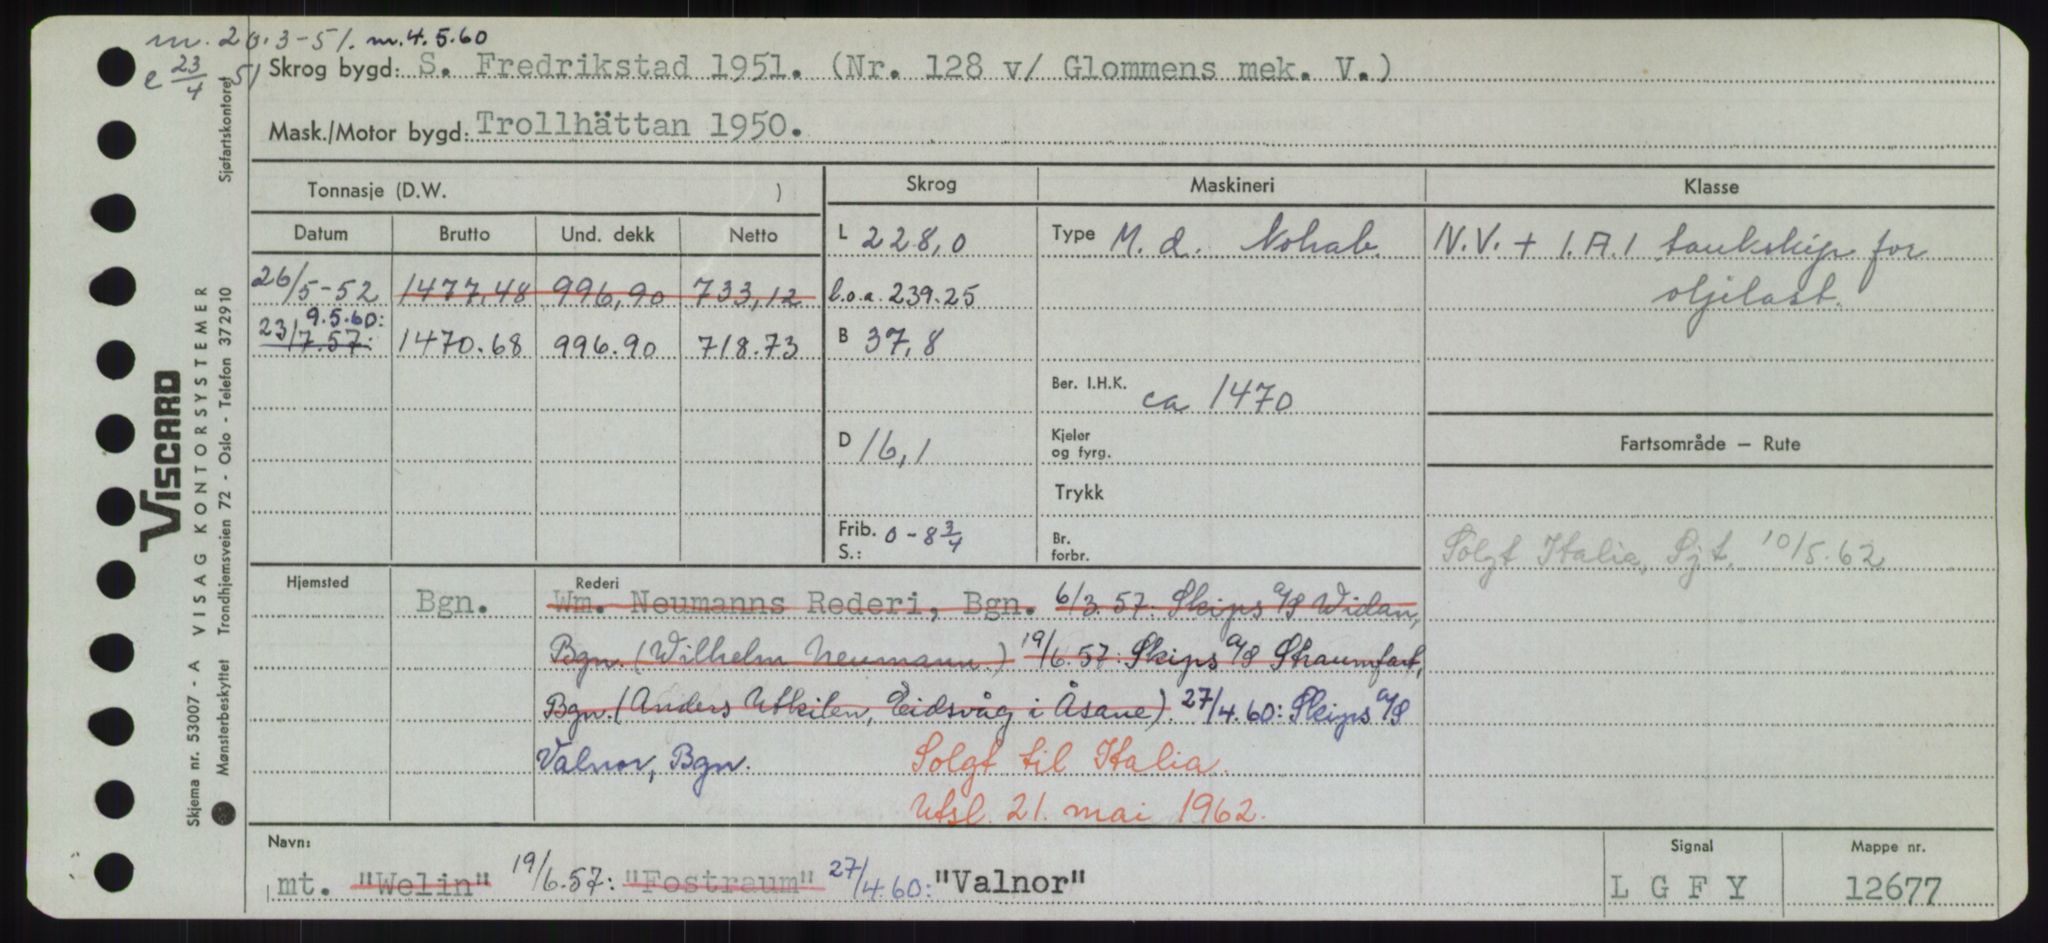 m. 20.3-51. m. 4.5.60
e 23/4 51
Skrog bygd: S. Fredrikstad 1951. (Nr. 128 v/ Glommens mek. V.)
Mask./Motor bygd: Trollhättan 1950.
Tonnasje (D.W. )
Skrog
Maskineri
Klasse
Datum
Brutto
Und. dekk
Netto
L 228,0
Type M. d. Nohab.
N.V. + 1.A.1 tankskip for
26/5-52 1477,48 996,90 733,12
l.o.a. 239.25
oljelast.
9.5.60:
23/7.57: 1470.68 996.90 718.73
B 37,8
Ber. I.H.K. ca 1470
D 16,1
Kjeler
og fyrg.
Fartsområde – Rute
Trykk
Frib.
S.: 0 - 8 3/4
Br.
forbr.
Solgt Italia, Sjt. 10/5.62
Hjemsted
Bgn.
Rederi
Wm. Neumanns Rederi, Bgn. 6/3.57: Skips A/S Widan,
Bgn. (Wilhelm Neumann.) 19/6.57: Skips A/S Straumfart,
Bgn. (Anders Utkilen, Eidsvåg i Åsane). 27/4.60: Skips A/S
Valnor, Bgn.
Solgt til Italia.
Utsl. 21. mai 1962.
Navn:
mt. "Welin" 19/6.57: "Fostraum" 27/4.60: "Valnor"
Signal
L G F Y
Mappe nr.
12677
VISCARD
Skjema nr. 53007 - A VISAG KONTORSYSTEMER
Mønsterbeskyttet Trondhjemsveien 72 - Oslo - Telefon 37 29 10
Sjøfartskontoret